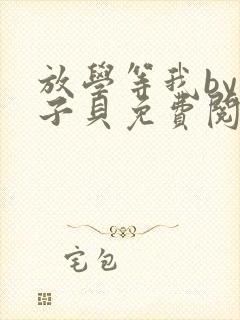 放學等我by
子貝免費閱
宅包